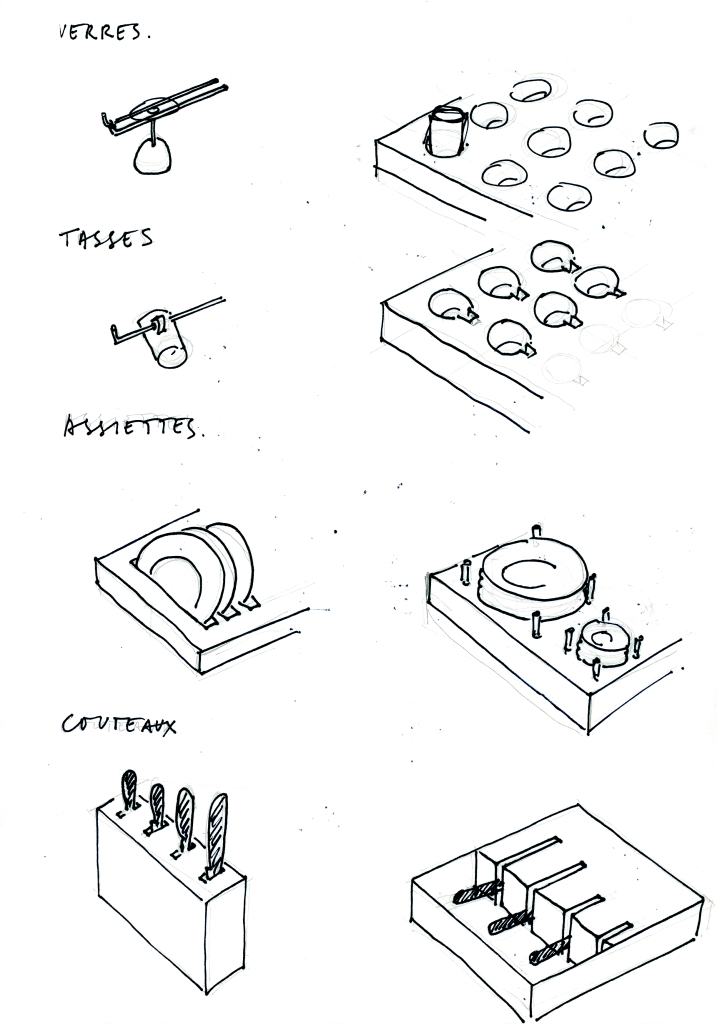 VERRES.
TASSES
ASSIETTES.
COUTEAUX